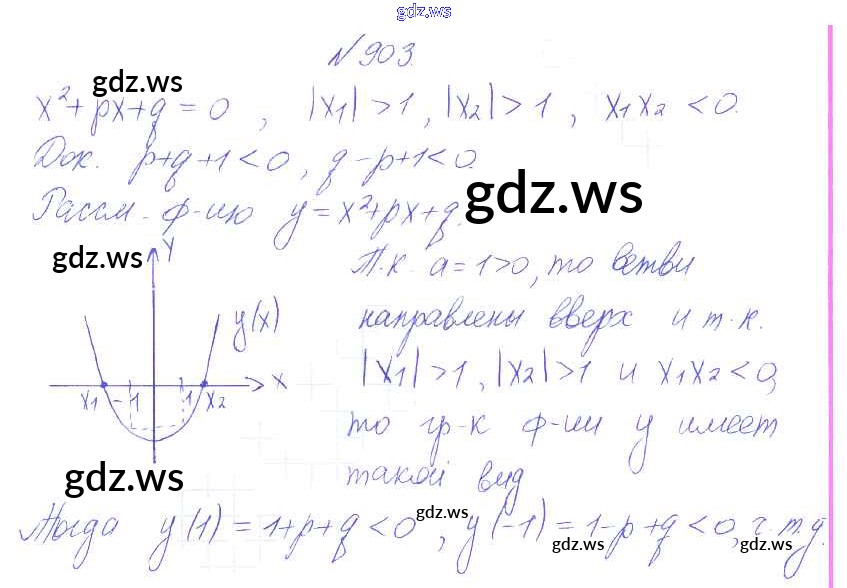 gdz.ws
№ 903.
gdz.ws
x²+px+q=0, |x₁|>1, |x₂|>1, x₁x₂<0.
Док. p+q+1<0, q-p+1<0.
gdz.ws
Рассм. ф-ию y=x²+px+q.
gdz.ws
y
Т.к. a=1>0, то ветви
направлены вверх и т.к.
y(x)
|x₁|>1, |x₂|>1 и x₁x₂<0,
x
x₁ -1 1 x₂
то гр-к ф-ии y имеет
такой вид
gdz.ws
Тогда y(1)=1+p+q<0, y(-1)=1-p+q<0, ч.т.д.
gdz.ws
gdz.ws gdz.ws